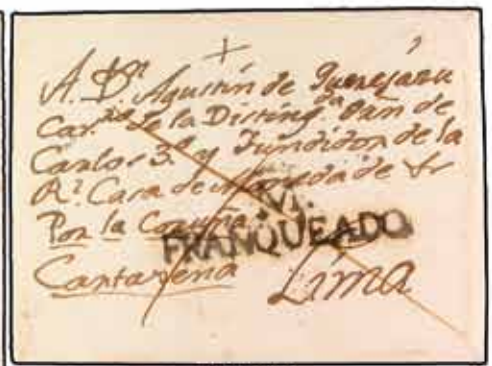 +
A. Dⁿ Agustin de Querejazu
Car.ro de la Disting.da Orn de
Carlos 3.º y Fundidor de la
R.l Casa de Moneda de
Por la Coruña
VI.
FRANQUEADO
Cartagena Lima